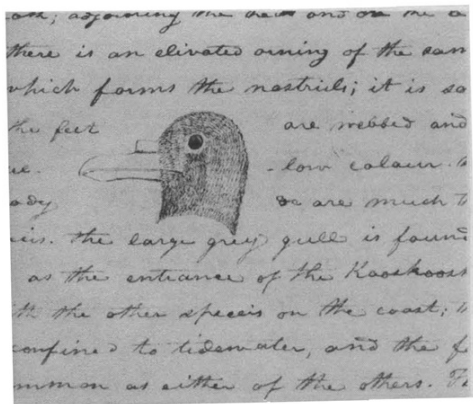 adjoining the and on the
there is an elivated orning of the sam
which forms the nostrils; it is so
the feet are webbed and
ue. -low colour. t
ody &c are much t
cis. the large grey gull is found
as the entrance of the Kooskoosk
ith the other speceis on the coast; t
confined to tidewater, and the f
mmon as either of the others. Th